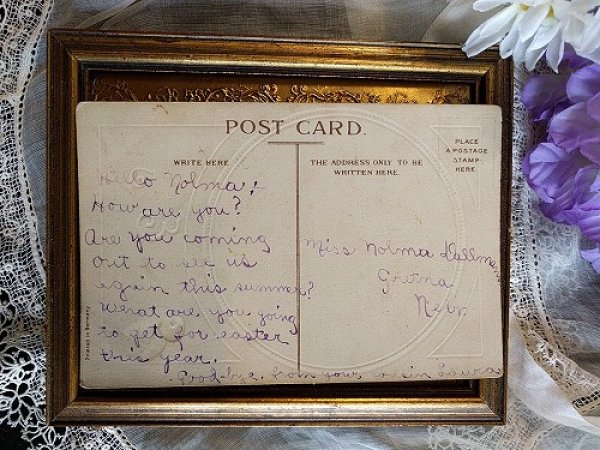 POST CARD.
WRITE HERE
THE ADDRESS ONLY TO BE
WRITTEN HERE
PLACE
A POSTAGE
STAMP
HERE
Hello Nolma:
How are you?
Are you coming
out to see us
again this summer?
What are you going
to get for easter
this year.
Good-bye. from your cousin Laura
Miss Nolma
Gretna
Nebr.
Printed in Germany